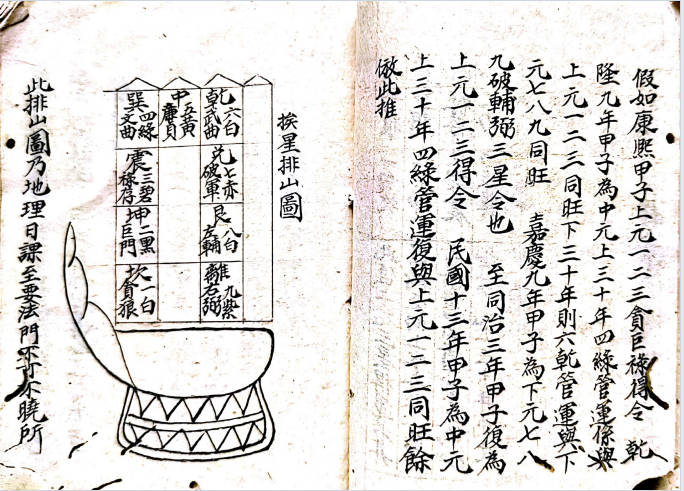 假如康熙甲子上元一二三貪巨祿得令 乾
隆九年甲子為中元上三十年四綠管運係與
上元一二三同旺下三十年則六乾管運與下
元七八九同旺 嘉慶九年甲子為下元七八
九破輔弼三星令也 至同治三年甲子復為
上元一二三得令 民國十三年甲子為中元
上三十年四綠管運復與上元一二三同旺餘
倣此推
挨星排山圖
乾六白武曲
兌七赤破軍
艮八白左輔
離九紫右弼
中五黃廉貞
巽四綠文曲
震三碧祿存
坤二黑巨門
坎一白貪狼
此排山圖乃地理日課至要法門不可不曉所